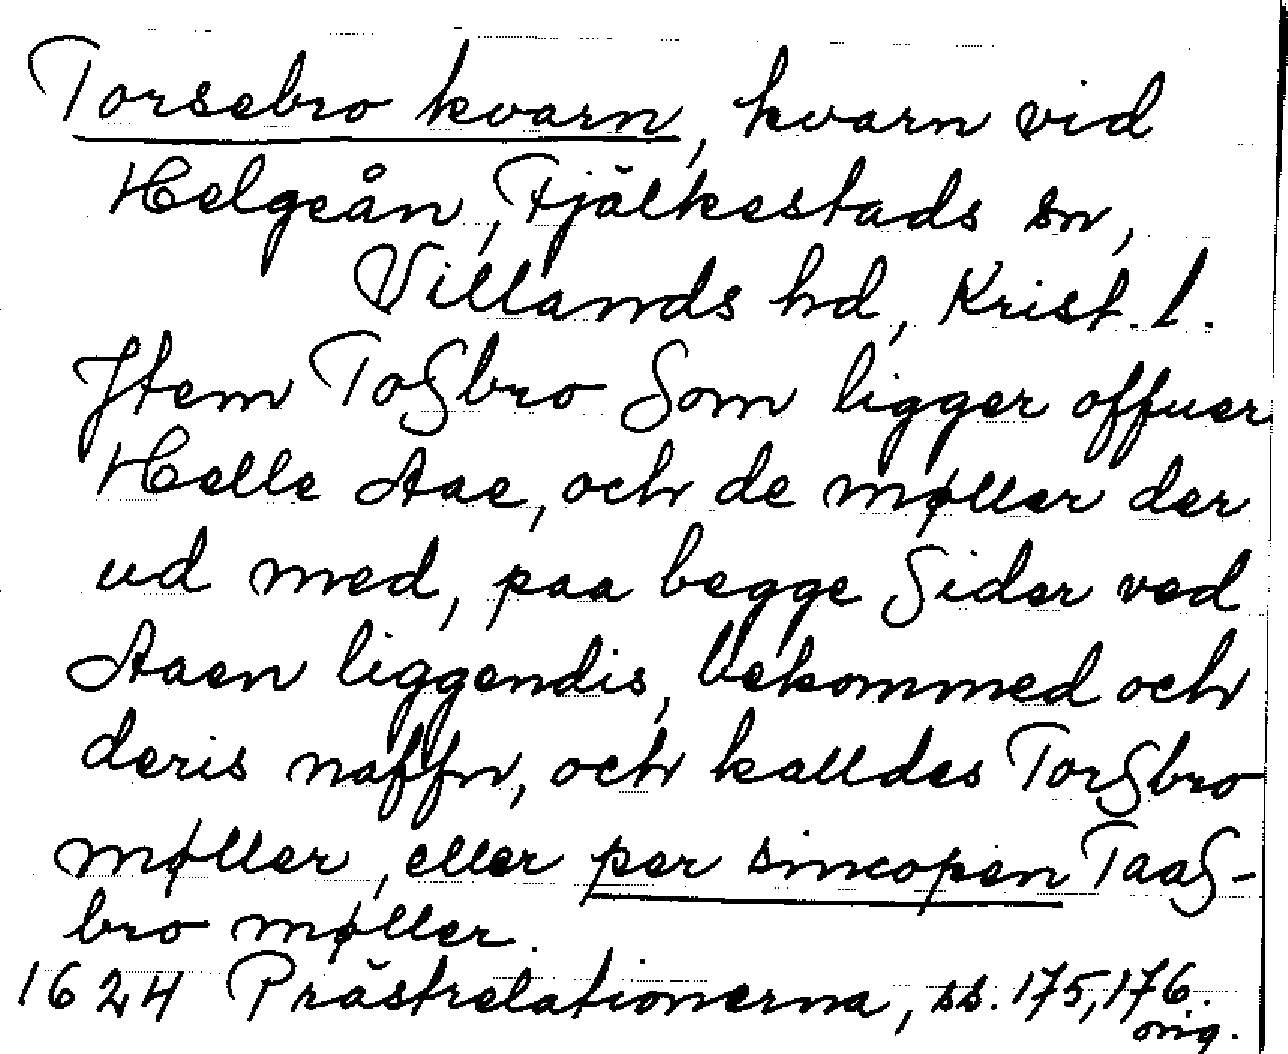 Torsebro kvarn, kvarn vid
Helgeån, Fjälkestads sn,
Villands hd, Krist. l.
Jtem Toſbro ſom ligger offuer
Helle Aae, och de møller der
ud med, paa begge ſider ved
Aaen liggendis, bekommed och
deris naffn, och kalldes Torſbro
møller, eller per sincopen Taaſ-
bro møller.
1624 Prästrelationerna, ss. 175, 176.
orig.